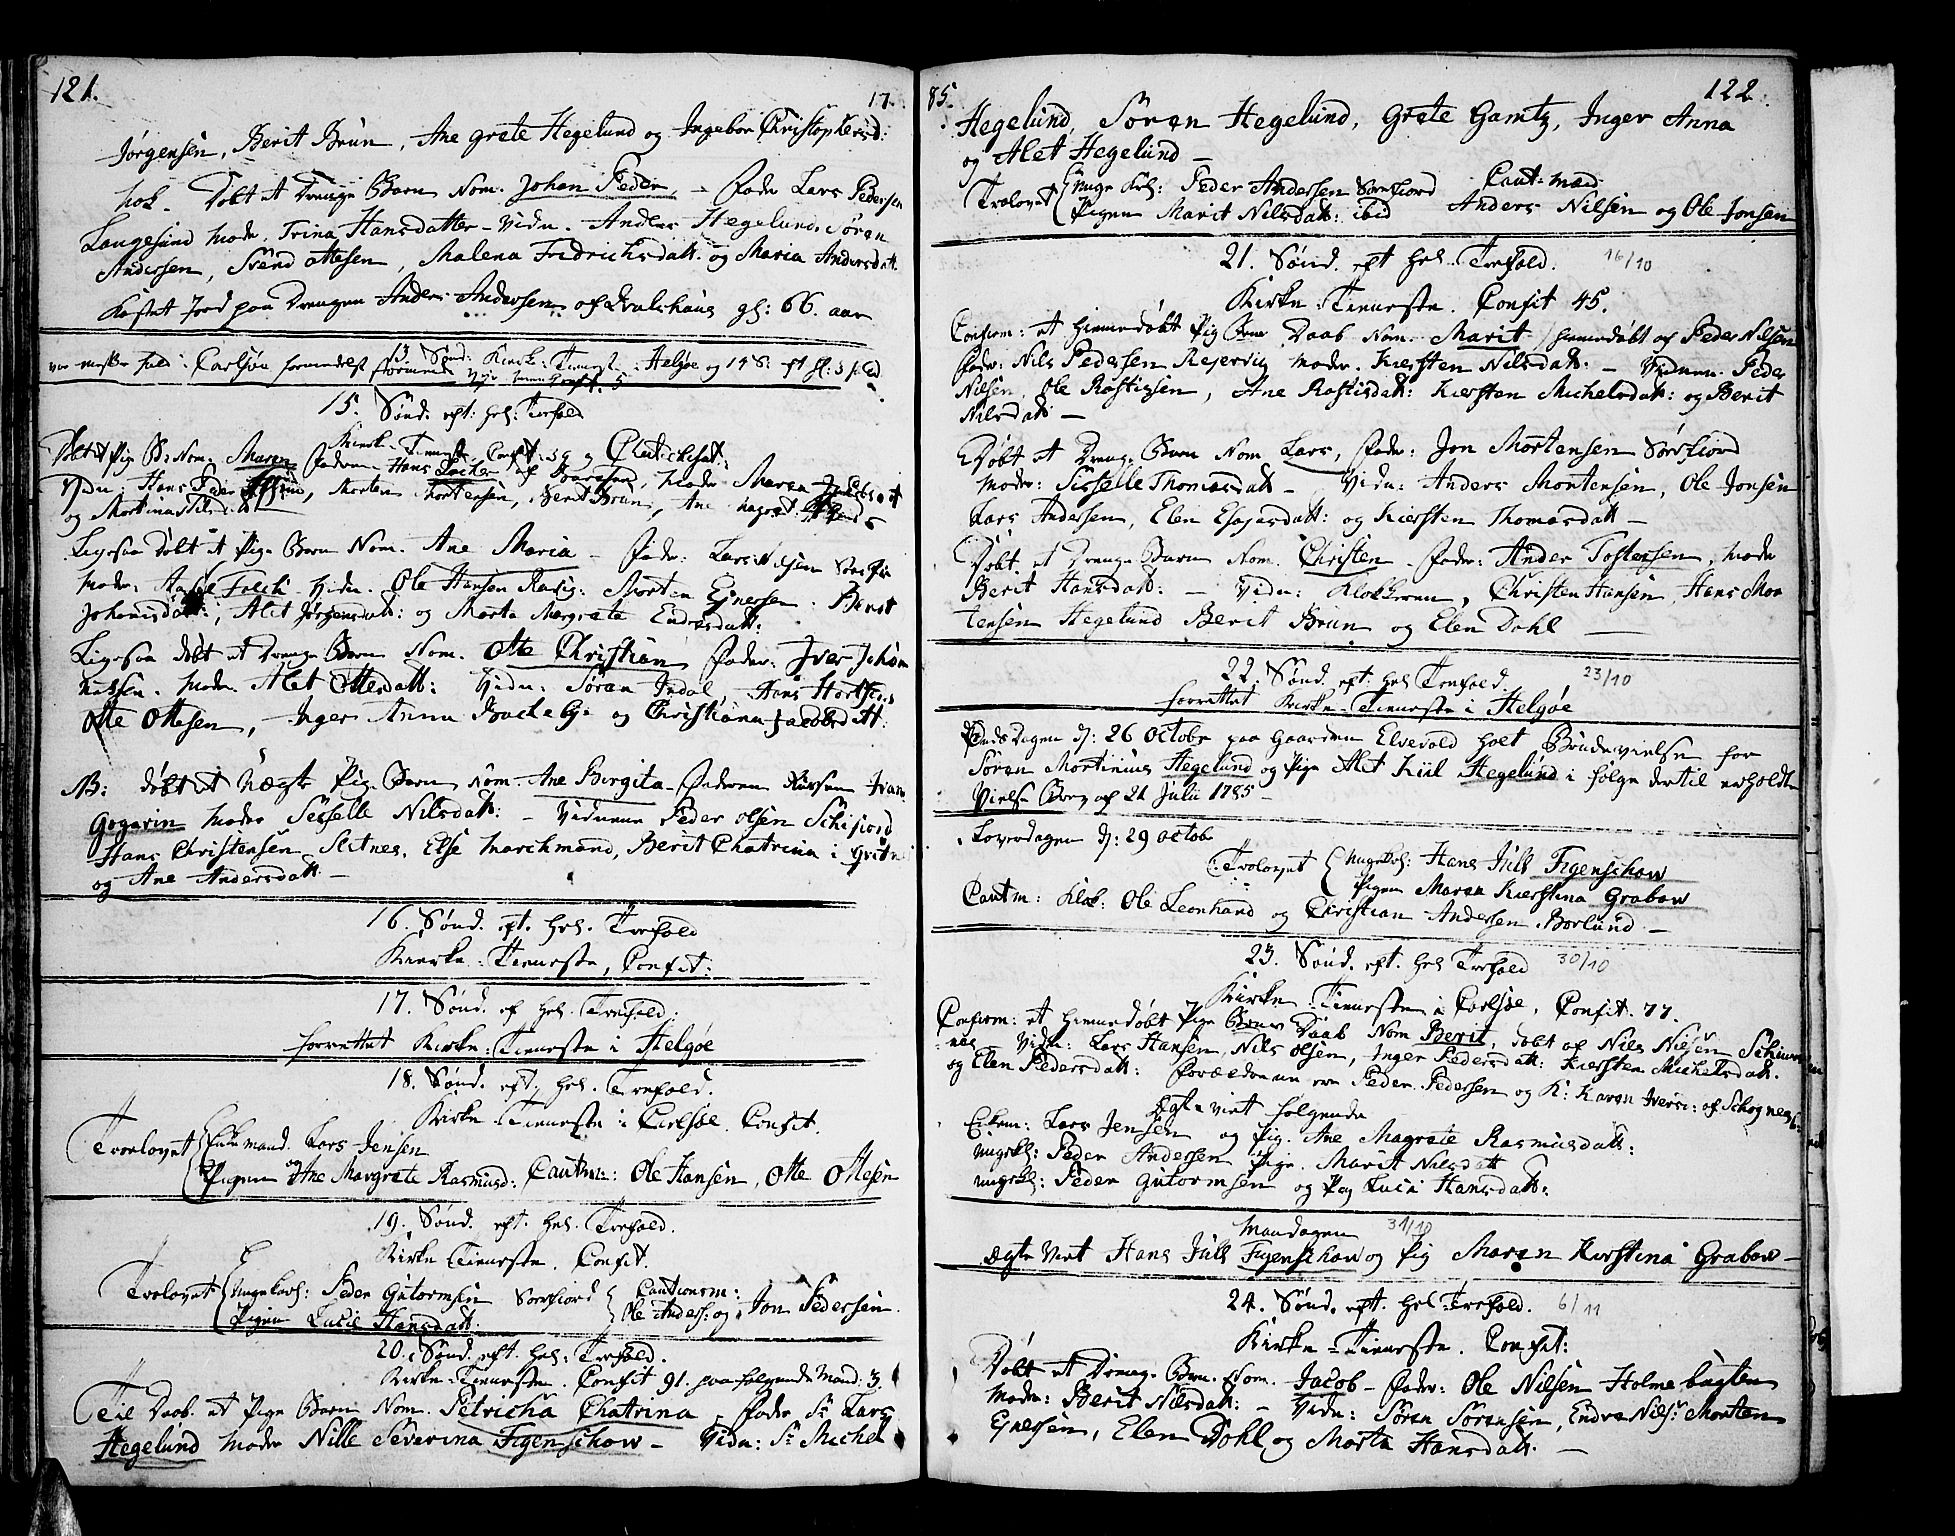 121.
17.
Jørgensen, Berit Brun, Ane grete Hegelund og Ingebor Christophersd:
hok. Døbt et Drenge Barn Nom. Johan Peder, - fader Lars Pedersen
Langesund Moder. Trina Hansdatter - Vidn. Anders Hegelund, Søren
Andersen, Svend Ottesen, Malena Fredrichsdatt. og Maria Andersdatt.
Kastet Jord paa Drengen Anders Andersen af gl: 66. aar
13 Sønd: Kirke-Tienest i Helgøe og 14 S:
15. Sønd. eft: hel: Trefold
Kirke-Tienest. Confit: 59
Døbt et Pige B: Nom. Maren Faderen Hans Moder Maren
Vidn. Hans Peder Morten Mortensen, Berit Brun, Ane
og Mortina
Ligesaa Døbt et Pige Barn Nom. Ane Maria - fader: Lars Nilsen
Moder: Falch - Vidn. Ole Hansen Morten Ejnersen. Berit
Johanisdatt:, Alet Jørgensdatt: og Marta Margrete Endresdatt:
Ligesaa døbt et Drenge Barn Nom. Otte Christian fader: Iver Johan
nessen. Moder. Alet Ottesdatt: Vidn: Søren Hans
Otte Ottesen, Inger Anna og Christiana Jacobsdatt.
NB: døbt et Uægte Pige Barn Nom. Ane Birgita - Faderen Ivan
Gogarin Moder Sisselle Nilsdatt: - Vidnene Peder Olsen Schifiord
Hans Christensen Sletnes, Else Marchmand, Berit Chatrina i
og Ane Andersdatt: -
16. Sønd. eft. hel. Trefold
Kirke-Tieneste, Confit:
17. Sønd. ef hel. Trefold.
forrettet Kirke-Tieneste i Helgøe
18. Sønd. eft. hel. Trefold.
Kirke-Tieneste i Carlsøe. Confit.
Trolovet Enkemand. Lars Jensen
og
Pigen Ane Margrete Rasmusd: Cautm: Ole Hansen, Otte Ottesen
19. Sønd. eft. hel. Trefold.
Kirke-Tieneste. Confit.
Trolovet Ungekarl: Peder Gutormsen Sørfiord Cautionsm:
Pigen Lucie Hansdatt: Ole Anders: og Jon Pedersen.
20. Sønd. eft. hel: Trefold.
Kirke-Tieneste. Confit 91. paa følgende Mand: 3.
Til Daab. et Pige Barn Nom. Petricha Chatrina, fader Sr Lars
Hegelund Moder Nille Severina Figenschow - Vidn: Sr Michel
85.
122.
Hegelund, Søren Hegelund, Grete Gamtz, Inger Anna
og Alet Hegelund -
Trolovet Unge Krl: Peder Andersen Sørfiord Caut: mæd
Pigen Marit Nilsdatt: ibid Anders Nilsen og Ole Jonsen
21. Sønd. eft hel. Trefold. 16/10
Kirke-Tieneste. Confit 45.
Confirm: et hiemedøbt Pige Barns Daab Nom. Marit hiemedøbt af Peder Nilsen
fader: Nils Pedersen Rejervig Moder. Kiersten Nilsdatt: - Vidnen. Peder
Nilsen, Ole Røstigsen, Ane Rastisdatt: Kiersten Michelsdatt: og Berit
Nilsdatt: -
Døbt et Drenge Barn Nom Lars, fader: Jon Mortensen Sørfiord
Moder: Sisselle Thomasdatt - Vidn: Anders Mortensen, Ole Jonsen
Lars Andersen, Elen Esajasdatt: og Kiersten Thomasdatt -
Døbt et Drenge Barn Nom. Christen - fader: Ander Tostensen, Moder
Berit Hansdatt: - Vidn: Klokkeren, Christen Hansen, Hans Mor
tensen Hegelund Berit Brun og Elen Dahl -
22. Sønd. eft. hel Trefold. 23/10
forrettet Kirke-Tieneste i Helgøe
Onsdagen d: 26 Octobr paa Gaarden Elvevold holt Brudevielse for
Søren Mortinius Hegelund og Pige Alet Kiil Hegelund i følge dertil erholdte
Vielse Brev af 21 Julii 1785 -
Løverdagen d: 29 Octobr
Trolovet Ungekrl: Hans Jull Figenschow
Pigen Maren Kierstina Grabow
Cautm: Klok: Ole Leonhard og Christian Andersen Borlund -
23. Sønd. eft. hel Trefold 30/10
Kirke-Tieneste i Carlsøe, Confit. 77.
Confirm: et hiemedøbt Pige Barns Daab Nom Berit, døbt af Nils Nilsen
Vidn: Lars Hansen, Nils Olsen, Inger Pedersdatt: Kiersten Michelsdatt.
og Elen Pedersdatt: forældrene ere Peder Pedersen og K: Karen Ivers: af Schognes
Ægteviet følgende
Enkem: Lars Jensen og Pig. Ane Magrete Rasmusdatt:
Ungkl: Peder Andersen Pige. Marit Nilsdatt
Ungkl: Peder Gutormsen og Pag Lucie Hansdatt:
Mandagen 31/10
Ægte Viet Hans Jull Figenschow og Pig Maren Kirstina Grabow -
24. Sønd. eft. hel Trefold. 6/11
Kirke-Tieneste. Confit:
Døbt et Dreng. Barn. Nom. Jacob - fader: Ole Nilsen Holmebugten
Moder: Berit Nilsdatt: - Vidn: Søren Sørensen, Endre Nils: Morten
Ejnersen, Elen Dahl og Marta Hansdatt. -